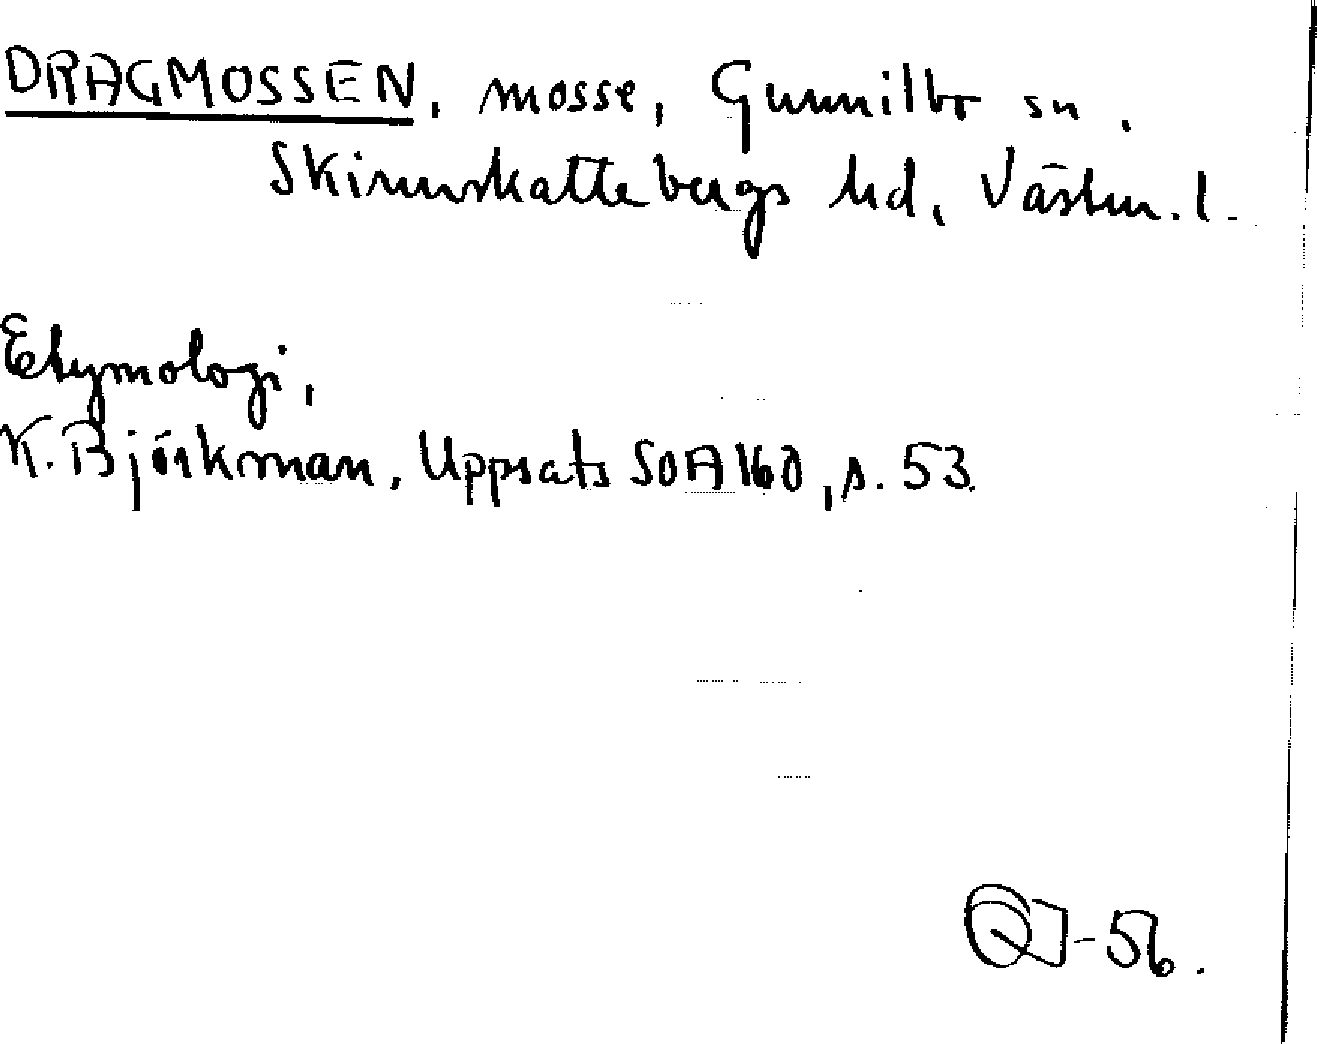 DRAGMOSSEN, mosse, Gunnilbo sn.
Skinnskattebergs hd, Västm. l.
Etymologi,
K. Björkman, Uppsats SOA 160, s. 53.
-56.